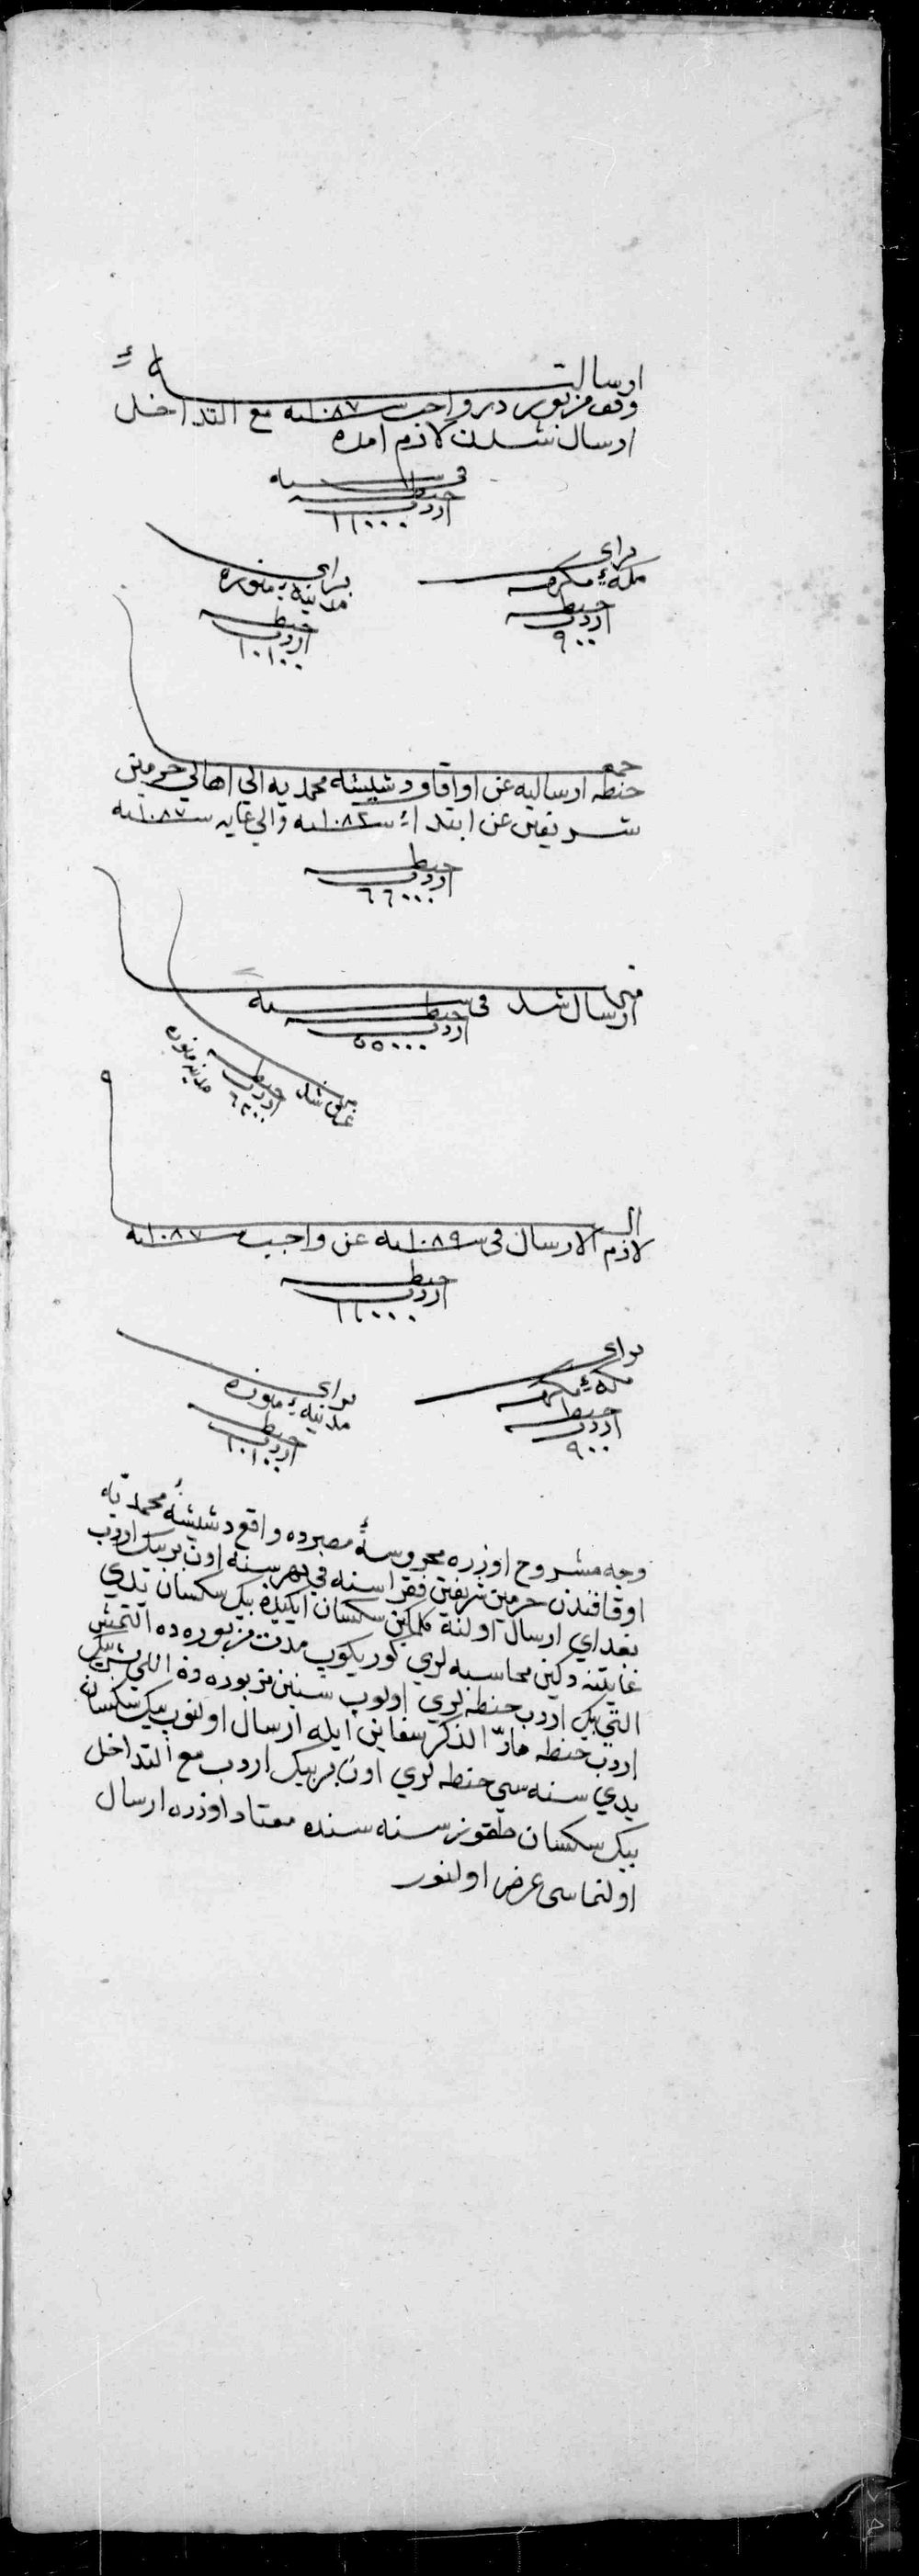 ارسالیت
وقف مزبور در واجب سنه ١٠٨٧ مع التداخل
ارسال شدن لازم امده
فی سنه
حنطه
اردب
١١٠٠٠
برای
مکۀ مکرمه
حنطه
اردب
٩٠٠
برای
مدینۀ منوره
حنطه
اردب
١٠١٠٠
جمع
حنطه ارسالیه عن اوقاف دشیشه محمدیه الی اهالی حرمین
شریفین عن ابتداء سنه ١٠٨٢ والی غایه سنه ١٠٨٧
حنطه
اردب
٦٦٠٠٠
منها
ارسال شد فی سنه
حنطه
اردب
٥٥٠٠٠
غرق شد
حنطه
اردب
مدینه منوره
الباقی
لازم الارسال فی سنه ١٠٨٩ عن واجب سنه ١٠٨٧
حنطه
اردب
١١٠٠٠
برای
مکۀ مکرمه
حنطه
اردب
٩٠٠
برای
مدینۀ منوره
حنطه
اردب
١٠١٠٠
وجه مشروح اوزره محروسۀ مصرده واقع دشیشۀ محمدیه
اوقافندن حرمین شریفین فقراسنه فی هر سنه اون بر بیک اردب
بغدای ارسال اولنه کلمکین سکسان ایکیدن بیک سکسان یدی
غایتنه دکین محاسبه لری کوریلوب مدت مزبوره ده التمش
التی بیک اردب حنطه لری اولوب سنین مزبوره ده اللی بش بیک
اردب حنطه مارّ الذکر سفاین ایله ارسال اولنوب بیک سکسان
یدی سنه سی حنطه لری اون بر بیک اردب مع التداخل
بیک سکسان طقوز سنه سنده معتاد اوزره ارسال
اولنماسی عرض اولنور